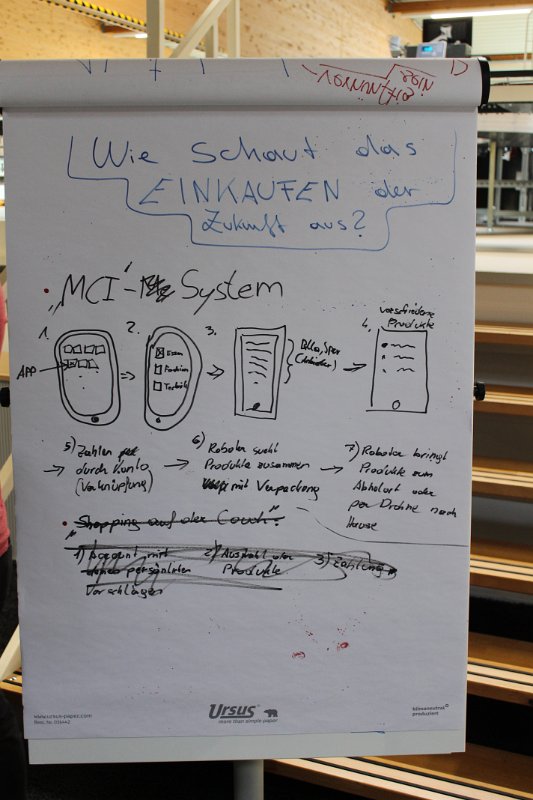 Wie schaut das
EINKAUFEN der
Zukunft aus?
• "MCI"- System
1.
2.
3.
4.
verschiedene
Produkte
APP
Essen
Fashion
Technik
Billa, Spar
5) Zahlen per
durch Konto
(Verknüpfung)
6) Roboter sucht
Produkte zusammen
mit Verpackung
7) Roboter bringt
Produkte zum
Abholort oder
per Drohne nach
Hause
• "Shopping auf der Couch"
1) Account mit
persönlichen
Vorschlägen
2) Auswahl der
Produkte
3) Zahlung
www.ursus-paper.com
URSUS
more than simple paper
klimaneutral
produziert